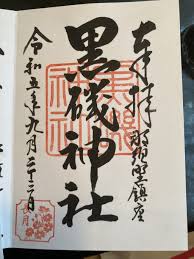 奉拝
那須野鎮座
黒磯神社
令和五年九月二十二日